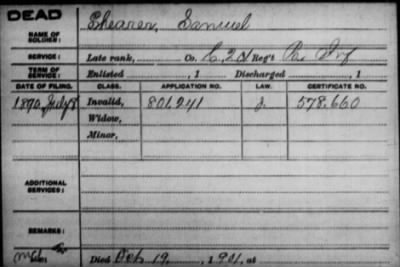 DEAD
NAME OF SOLDIER: Shearer, Samuel
SERVICE: Late rank, Co. C, 2 Reg't Pa. Inf
TERM OF SERVICE: Enlisted , 1 Discharged , 1
DATE OF FILING. CLASS. APPLICATION NO. LAW. CERTIFICATE NO.
1890, July 8 Invalid, 801.241 J. 578.660
Widow,
Minor,
ADDITIONAL SERVICES:
REMARKS:
Died 19, , 1901, at